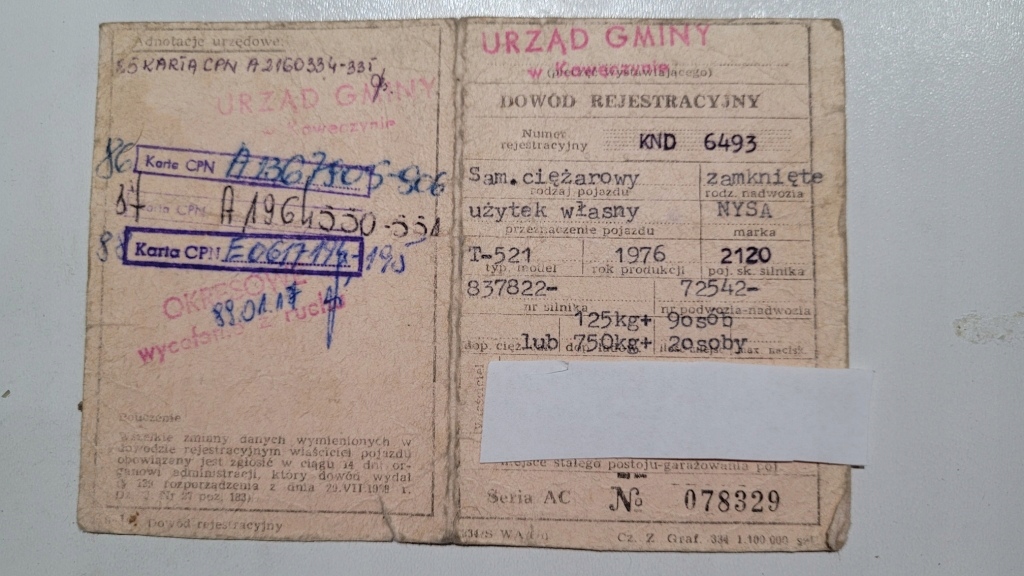 Adnotacje urzędowe:
85 KARTA CPN A2160334-335
URZĄD GMINY
w Kawęczynie
86 Karta CPN
87 Karta CPN A1964550-551
88 Karta CPN
OKRESOWE
89.01.17
wycofanie z ruchu
Pouczenie
Wszelkie zmiany danych wymienionych w
dowodzie rejestracyjnym właściciel pojazdu
obowiązany jest zgłosić w ciągu 14 dni or-
ganowi administracji, który dowód wydał
rozporządzenia z dnia
Nr 27 poz.
Dowód rejestracyjny
URZĄD GMINY
w Kawęczynie
DOWÓD REJESTRACYJNY
Numer
rejestracyjny KND 6493
Sam.ciężarowy zamknięte
rodzaj pojazdu rodz. nadwozia
użytek własny NYSA
przeznaczenie pojazdu marka
T-521 1976 2120
typ, model rok produkcji poj. sk. silnika
837822- 72542-
nr silnika nr podwozia-nadwozia
125kg+ 9osób
lub 750kg+ 2osoby
miejsce stałego postoju-garażowania poj.
Seria AC № 078329
Cz. Z Graf. 334 1.100.000